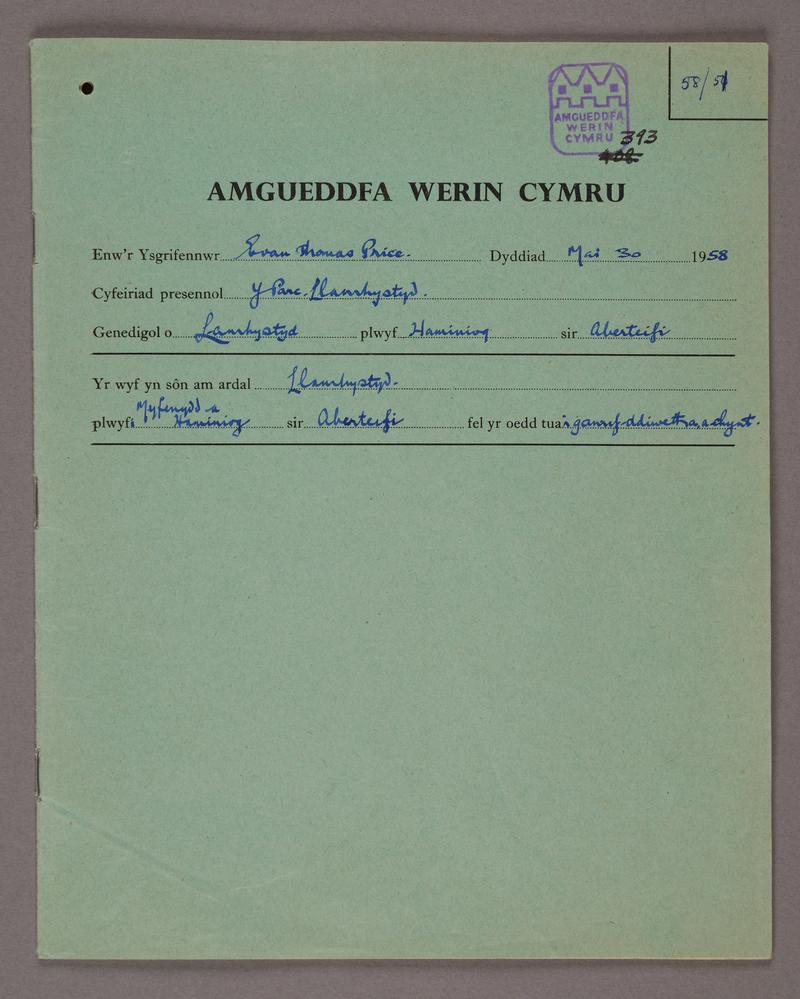 58/51
AMGUEDDFA
WERIN
CYMRU
393
AMGUEDDFA WERIN CYMRU
Enw'r Ysgrifennwr Evan Thomas Price. Dyddiad Mai 30 1958
Cyfeiriad presennol Y Parc. Llanrhystyd.
Genedigol o Lanrhystyd plwyf Haminiog sir Aberteifi
Yr wyf yn sôn am ardal Llanrhystyd.
Myfenydd a
plwyfi Haminiog sir Aberteifi fel yr oedd tua'r ganrif ddiwetha, a chynt.